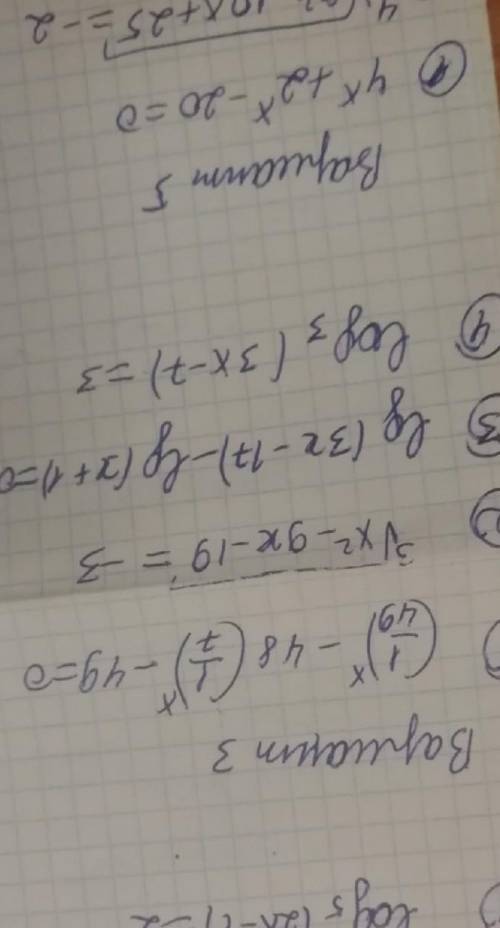 log₅
Вариант 3
(1/49)ˣ - 48 (1/7)ˣ - 49 = 0
∛x² - 9x - 19 = -3
③ lg (3x - 17) - lg (x + 1) = 0
④ log₃ (3x - 7) = 3
Вариант 5
① 4ˣ + 2ˣ - 20 = 0
10x + 25 = -2